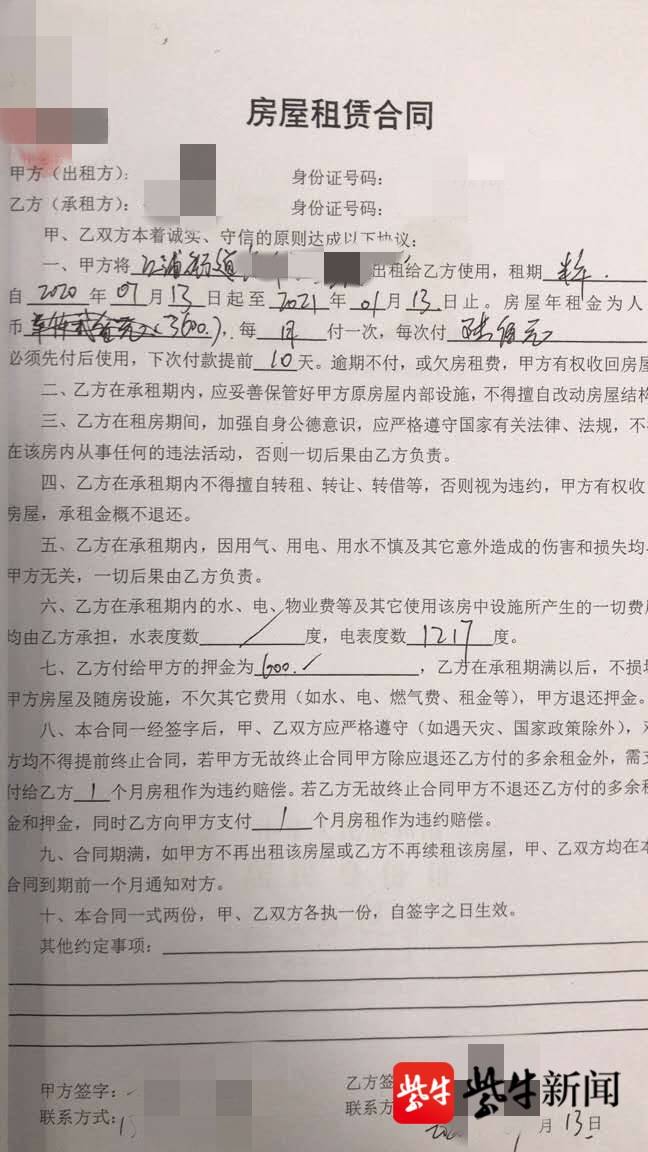 房屋租赁合同
甲方（出租方）：
身份证号码：
乙方（承租方）：
身份证号码：
甲、乙双方本着诚实、守信的原则达成以下协议：
一、甲方将 江浦街道 出租给乙方使用，租期 半年.
自 2020 年 07 月 13 日起至 2021 年 01 月 13 日止。房屋年租金为人
币 (3600.)，每 月 付一次，每次付 陆佰元
必须先付后使用，下次付款提前 10 天。逾期不付，或欠房租费，甲方有权收回房屋
二、乙方在承租期内，应妥善保管好甲方原房屋内部设施，不得擅自改动房屋结构
三、乙方在租房期间，加强自身公德意识，应严格遵守国家有关法律、法规，不
在该房内从事任何的违法活动，否则一切后果由乙方负责。
四、乙方在承租期内不得擅自转租、转让、转借等，否则视为违约，甲方有权收
房屋，承租金概不退还。
五、乙方在承租期内，因用气、用电、用水不慎及其它意外造成的伤害和损失均
甲方无关，一切后果由乙方负责。
六、乙方在承租期内的水、电、物业费等及其它使用该房中设施所产生的一切费
均由乙方承担，水表度数 / 度，电表度数 1217 度。
七、乙方付给甲方的押金为 600.✓ ，乙方在承租期满以后，不损
甲方房屋及随房设施，不欠其它费用（如水、电、燃气费、租金等），甲方退还押金。
八、本合同一经签字后，甲、乙双方应严格遵守（如遇天灾、国家政策除外），
方均不得提前终止合同，若甲方无故终止合同甲方除应退还乙方付的多余租金外，需
付给乙方 1 个月房租作为违约赔偿。若乙方无故终止合同甲方不退还乙方付的多余
金和押金，同时乙方向甲方支付 1 个月房租作为违约赔偿。
九、合同期满，如甲方不再出租该房屋或乙方不再续租该房屋，甲、乙双方均在本
合同到期前一个月通知对方。
十、本合同一式两份，甲、乙双方各执一份，自签字之日生效。
其他约定事项：
甲方签字：
乙方签
联系方式：
联系方
月 13 日
紫牛 紫牛新闻